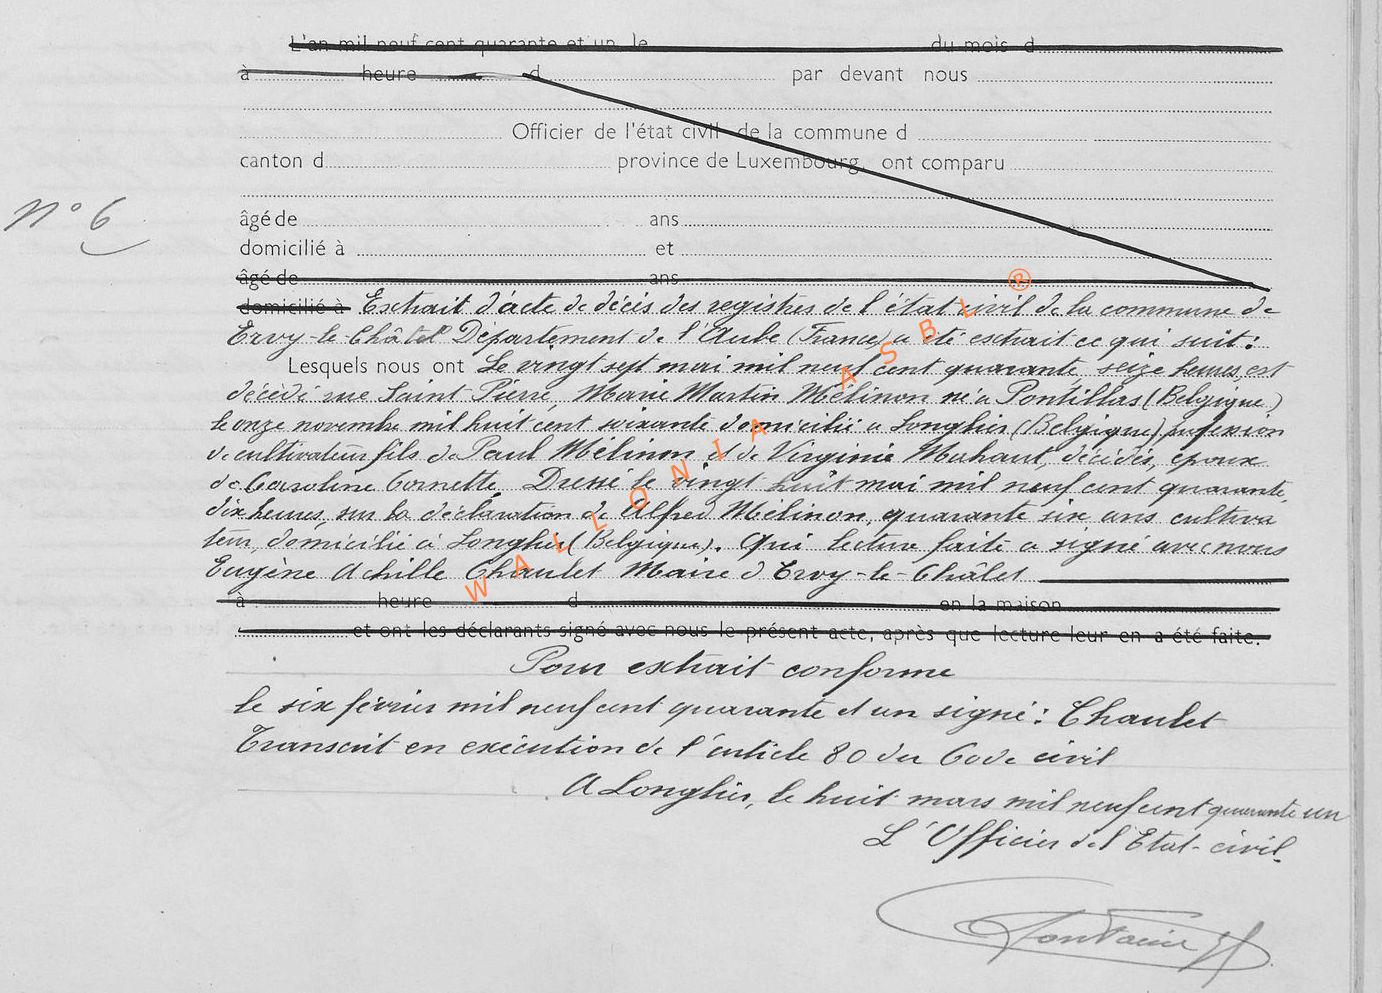 L'an mil neuf cent quarante et un, le du mois d
à heure d par devant nous
Officier de l'état civil de la commune d
canton d province de Luxembourg, ont comparu
N° 6
âgé de ans
domicilié à et
âgé de ans
domicilié à Extrait d'acte de décès des registres de l'état civil de la commune de
Ervy-le-Châtel Département de l'Aube (France) a été extrait ce qui suit:
Lesquels nous ont Le vingt sept mai mil neuf cent quarante, seize heures, est
décédé rue Saint Pierre, Marie Martin Mélinon né à Pontillas (Belgique)
le onze novembre mil huit cent soixante domicilié à Longlier (Belgique) profession
de cultivateur fils de Paul Mélinon et de Virginie Mahaut, décédés, époux
de Caroline Cornette. Dressé le vingt huit mai mil neuf cent quarante,
dix heures, sur la déclaration de Alfred Mélinon, quarante six ans cultiva
teur, domicilié à Longlier (Belgique). Qui lecture faite a signé avec nous
Eugène Achille Chaulet Maire d'Ervy-le-Châtel
à heure d en la maison
et ont les déclarants signé avec nous le présent acte, après que lecture leur en a été faite.
Pour extrait conforme
le six février mil neuf cent quarante et un signé: Chaulet
Transcrit en exécution de l'article 80 du Code civil
A Longlier, le huit mars mil neuf cent quarante un
L'Officier de l'Etat-civil.
Fontaine
WALLONIA ASBL ®